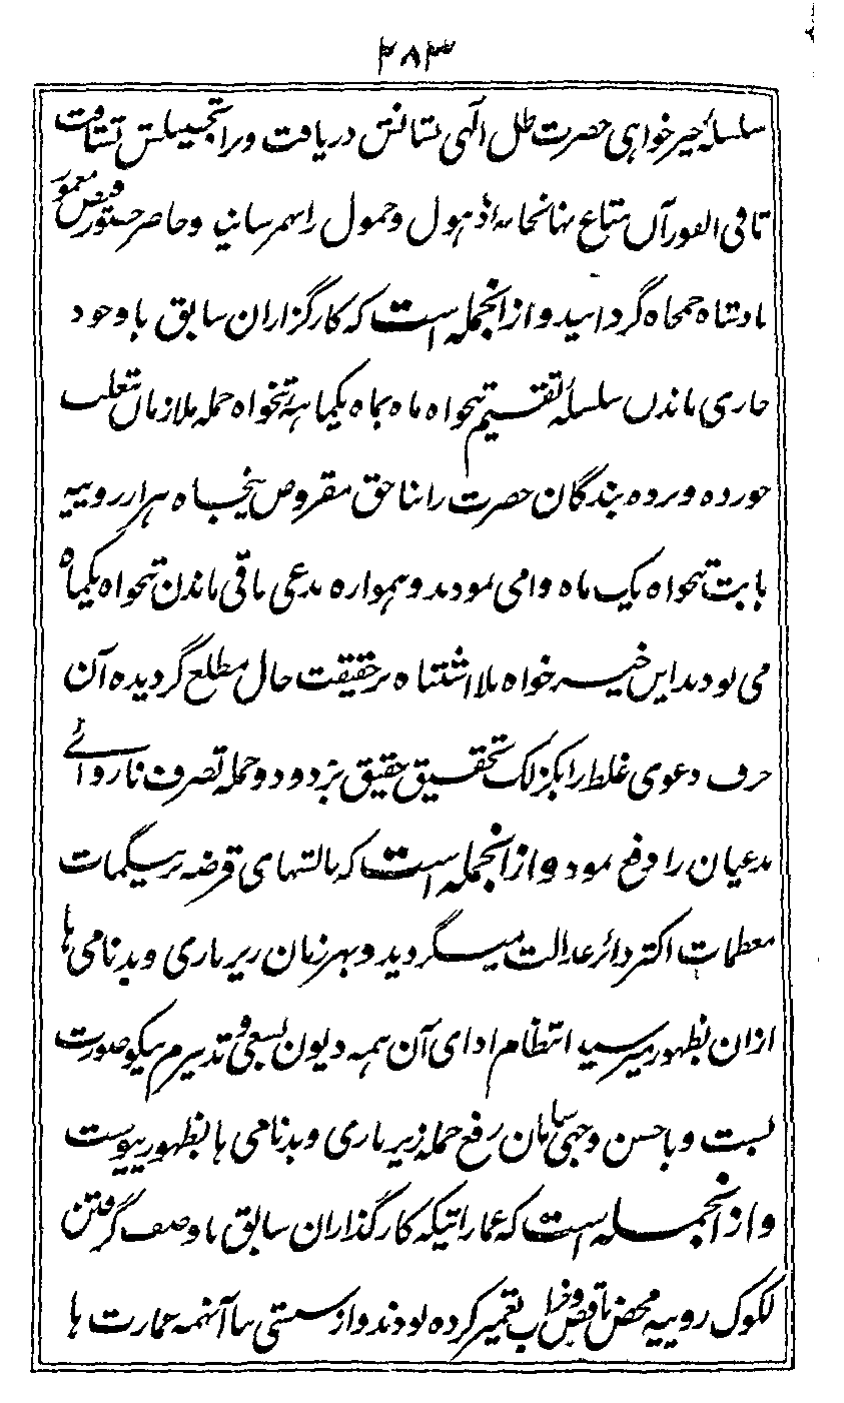 ۲۸۳
سلسلهٔ خیرخواهی حضرت ظل الٰهی نشانش دریافت و براه تجیلش شتافت
تا فی الفور آں متاع نهانخانه ذهول و خمول را بهم رسانید و حاضر حضور فیض معمور
بادشاه جمجاه گردانید و از انجمله است که کارگزاران سابق با وجود
جاری ماندں سلسلهٔ تقسیم تنخواه ماه بماه یکماهه تنخواه جمله ملازماں تغلب
خورده و برده بندگان حضرت را بناحق مقروض پنجاه هزار روپیه
بابت تنخواه یک ماه وا می نمودند و همواره مدعی باقی ماندن تنخواه یکماه
می بودند این خیر خواه بلا اشتباه بر حقیقت حال مطلع گردیده آن
حرف دعوی غلط را بکزلک تحقیق حقیق بزدود و جمله تصرف نارواے
مدعیان را رفع نمود و از انجمله است که نالشهای قرضه بر بیگمات
معظمات اکثر دائر عدالت میگردید و بهر زمان زیرباری و بدنامی ها
ازان بظهور میرسید انتظام ادای آن همه دیون بسعی و تدبیرم نیکو صورت
بست و باحسن وجهی سامان رفع جمله زیرباری و بدنامی ها بظهور پیوست
و از انجمله است که عماراتیکه کارگذاران سابق با وصف گرفتن
لکوک روپیه محض ناقص و خراب تعمیر کرده بودند و از سستی بنا آنهمه عمارت ها